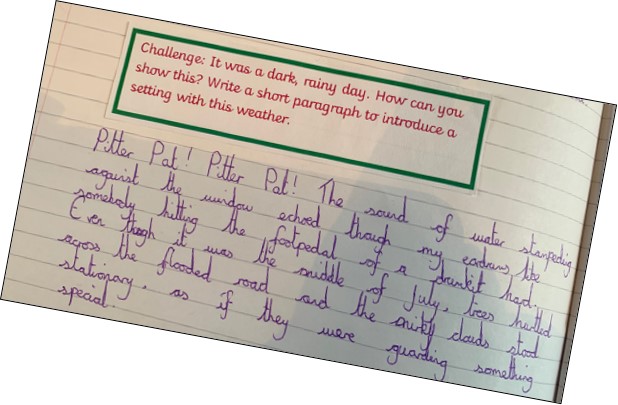 Challenge: It was a dark, rainy day. How can you
show this? Write a short paragraph to introduce a
setting with this weather.
Pitter Pat! Pitter Pat! The sound of water stampeding
against the window echoed though my eardrums like
somebody hitting the footpedal of a drumkit hard.
Even though it was the middle of July, trees hurtled
across the flooded road and the murky clouds stood
stationary, as if they were guarding something
special.